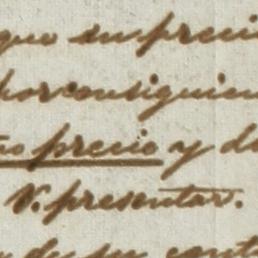 que su preci
porconsiguien
o precio y d
V. presentar.